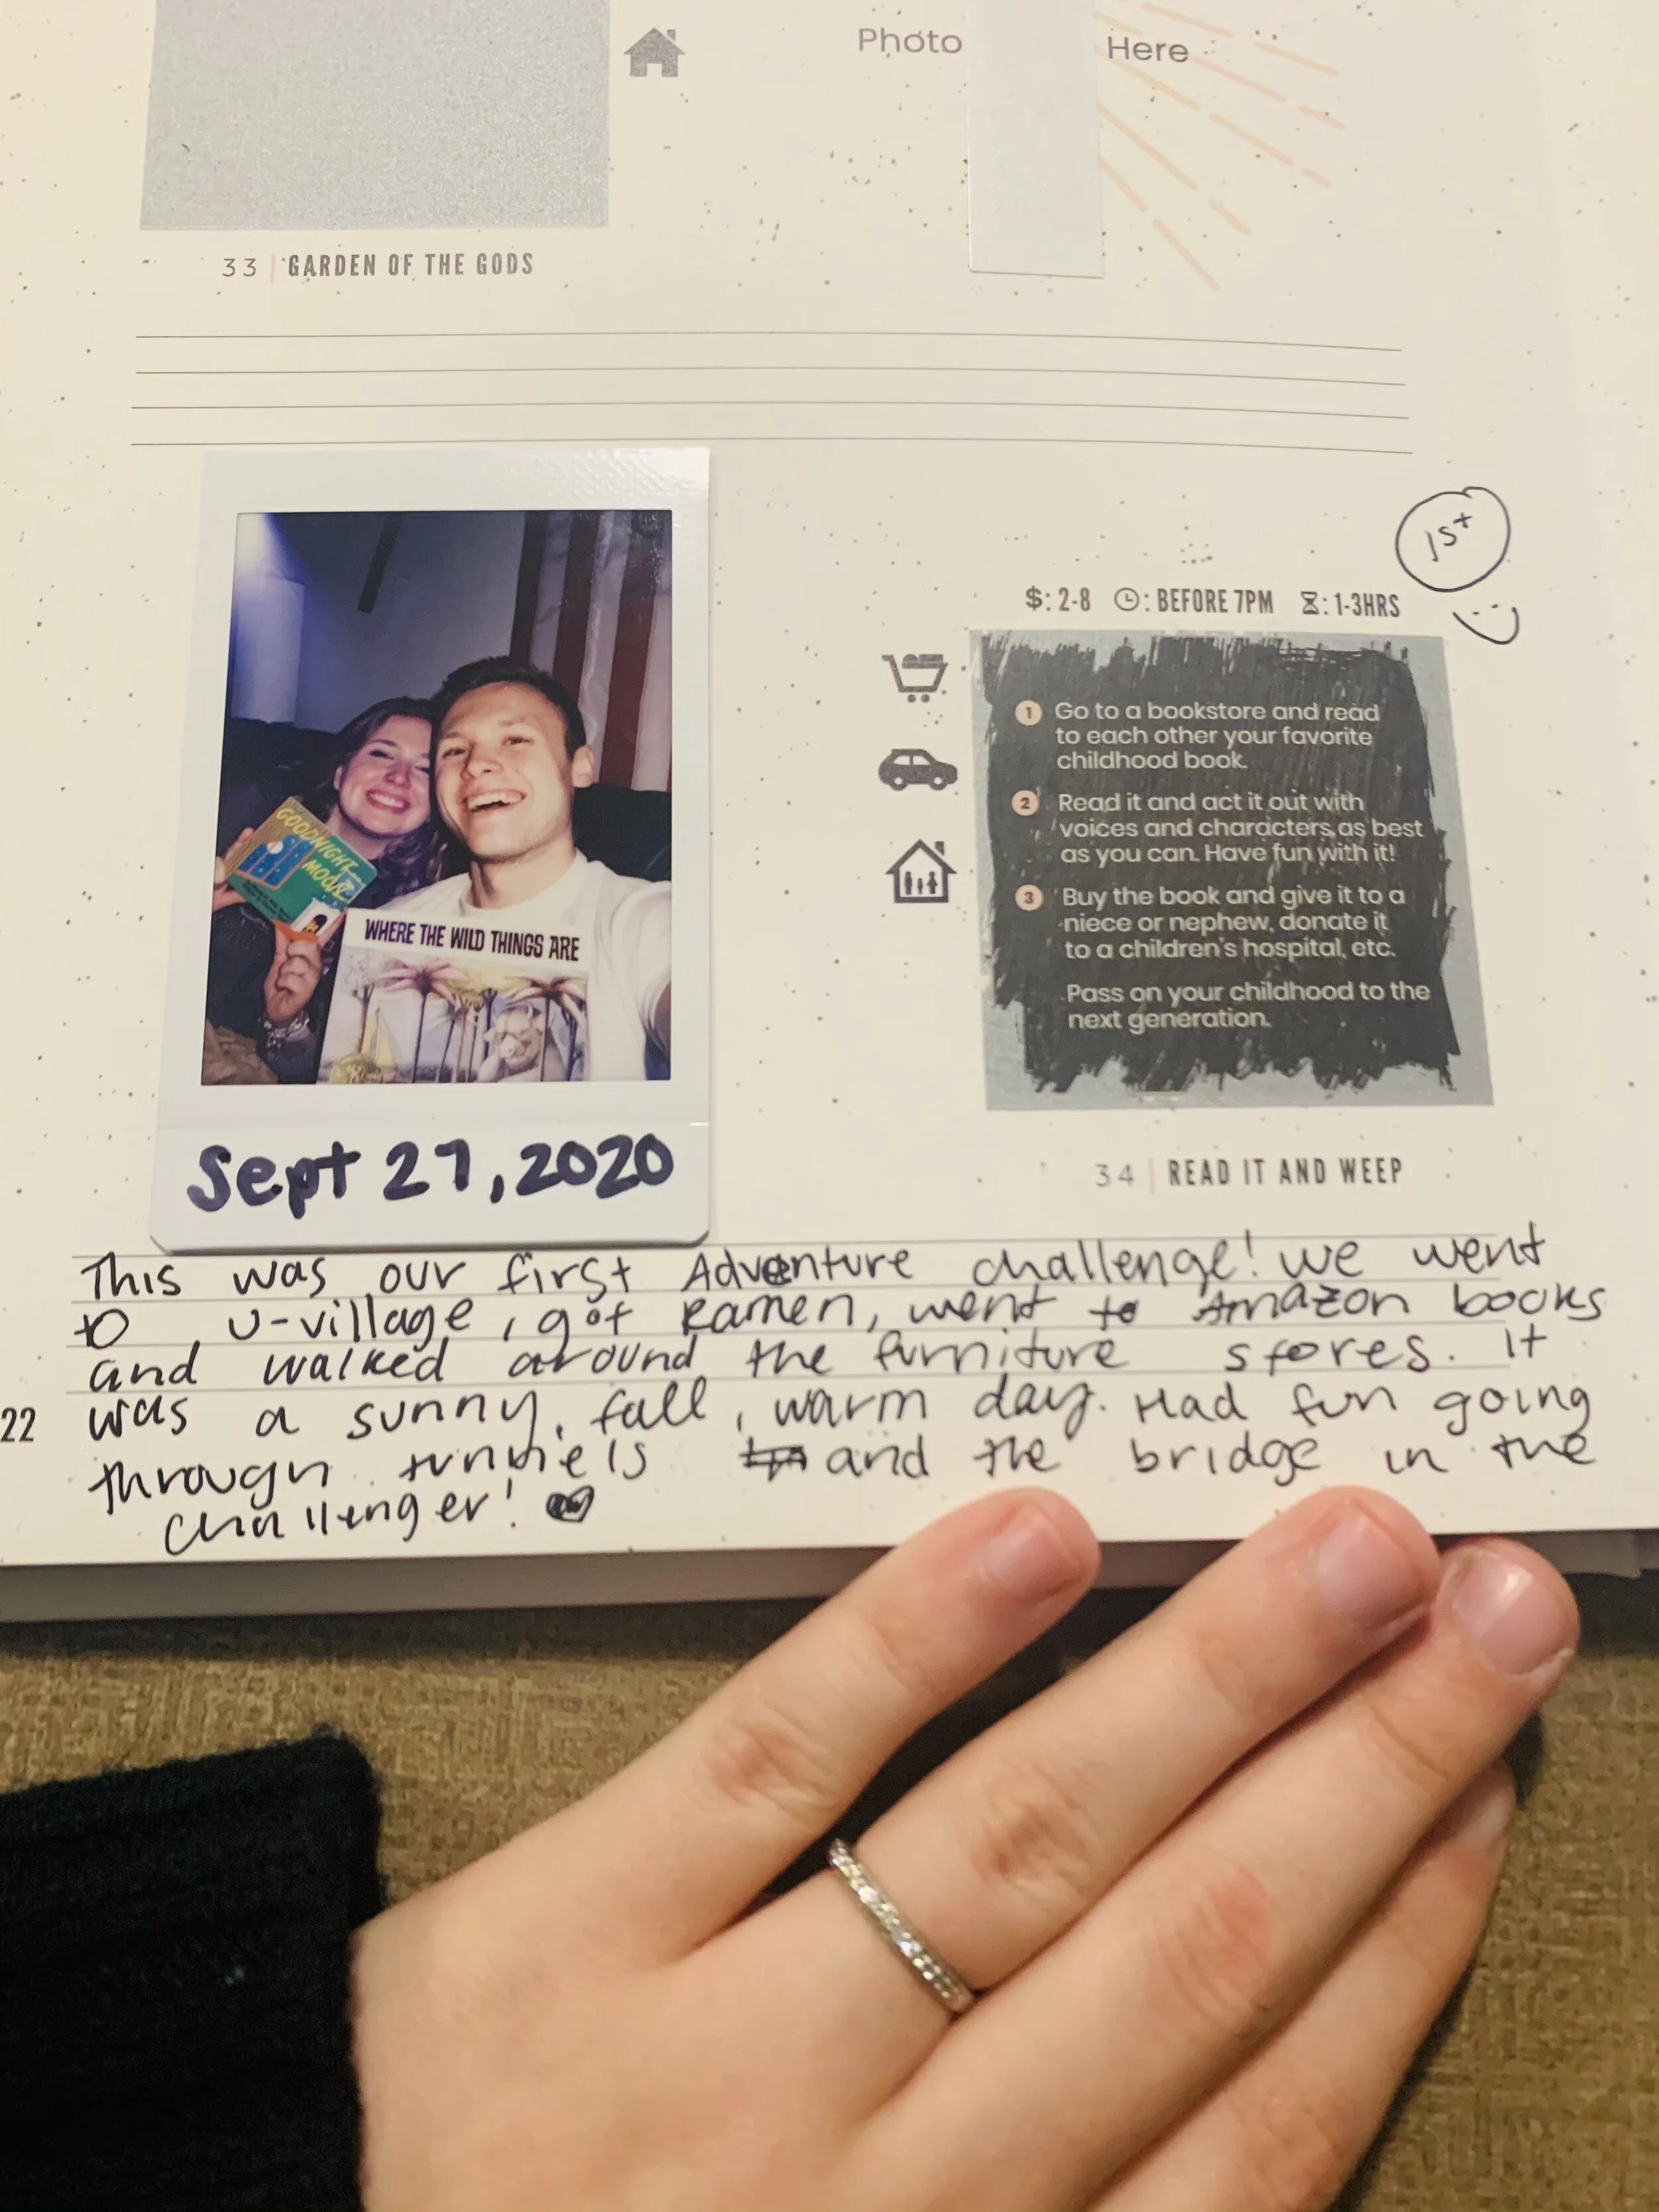 Photo Here
33 | GARDEN OF THE GODS
1st
$: 2-8 : BEFORE 7PM : 1-3HRS
1 Go to a bookstore and read
to each other your favorite
childhood book.
2 Read it and act it out with
voices and characters as best
as you can. Have fun with it!
3 Buy the book and give it to a
niece or nephew, donate it
to a children's hospital, etc.
Pass on your childhood to the
next generation.
34 | READ IT AND WEEP
GOODNIGHT
MOON
WHERE THE WILD THINGS ARE
Sept 27, 2020
This was our first Adventure challenge! we went
to U-village, got Ramen, went to Amazon books
and walked around the furniture stores. It
was a sunny, fall, warm day. Had fun going
through tunnels and the bridge in the
challenger!
22